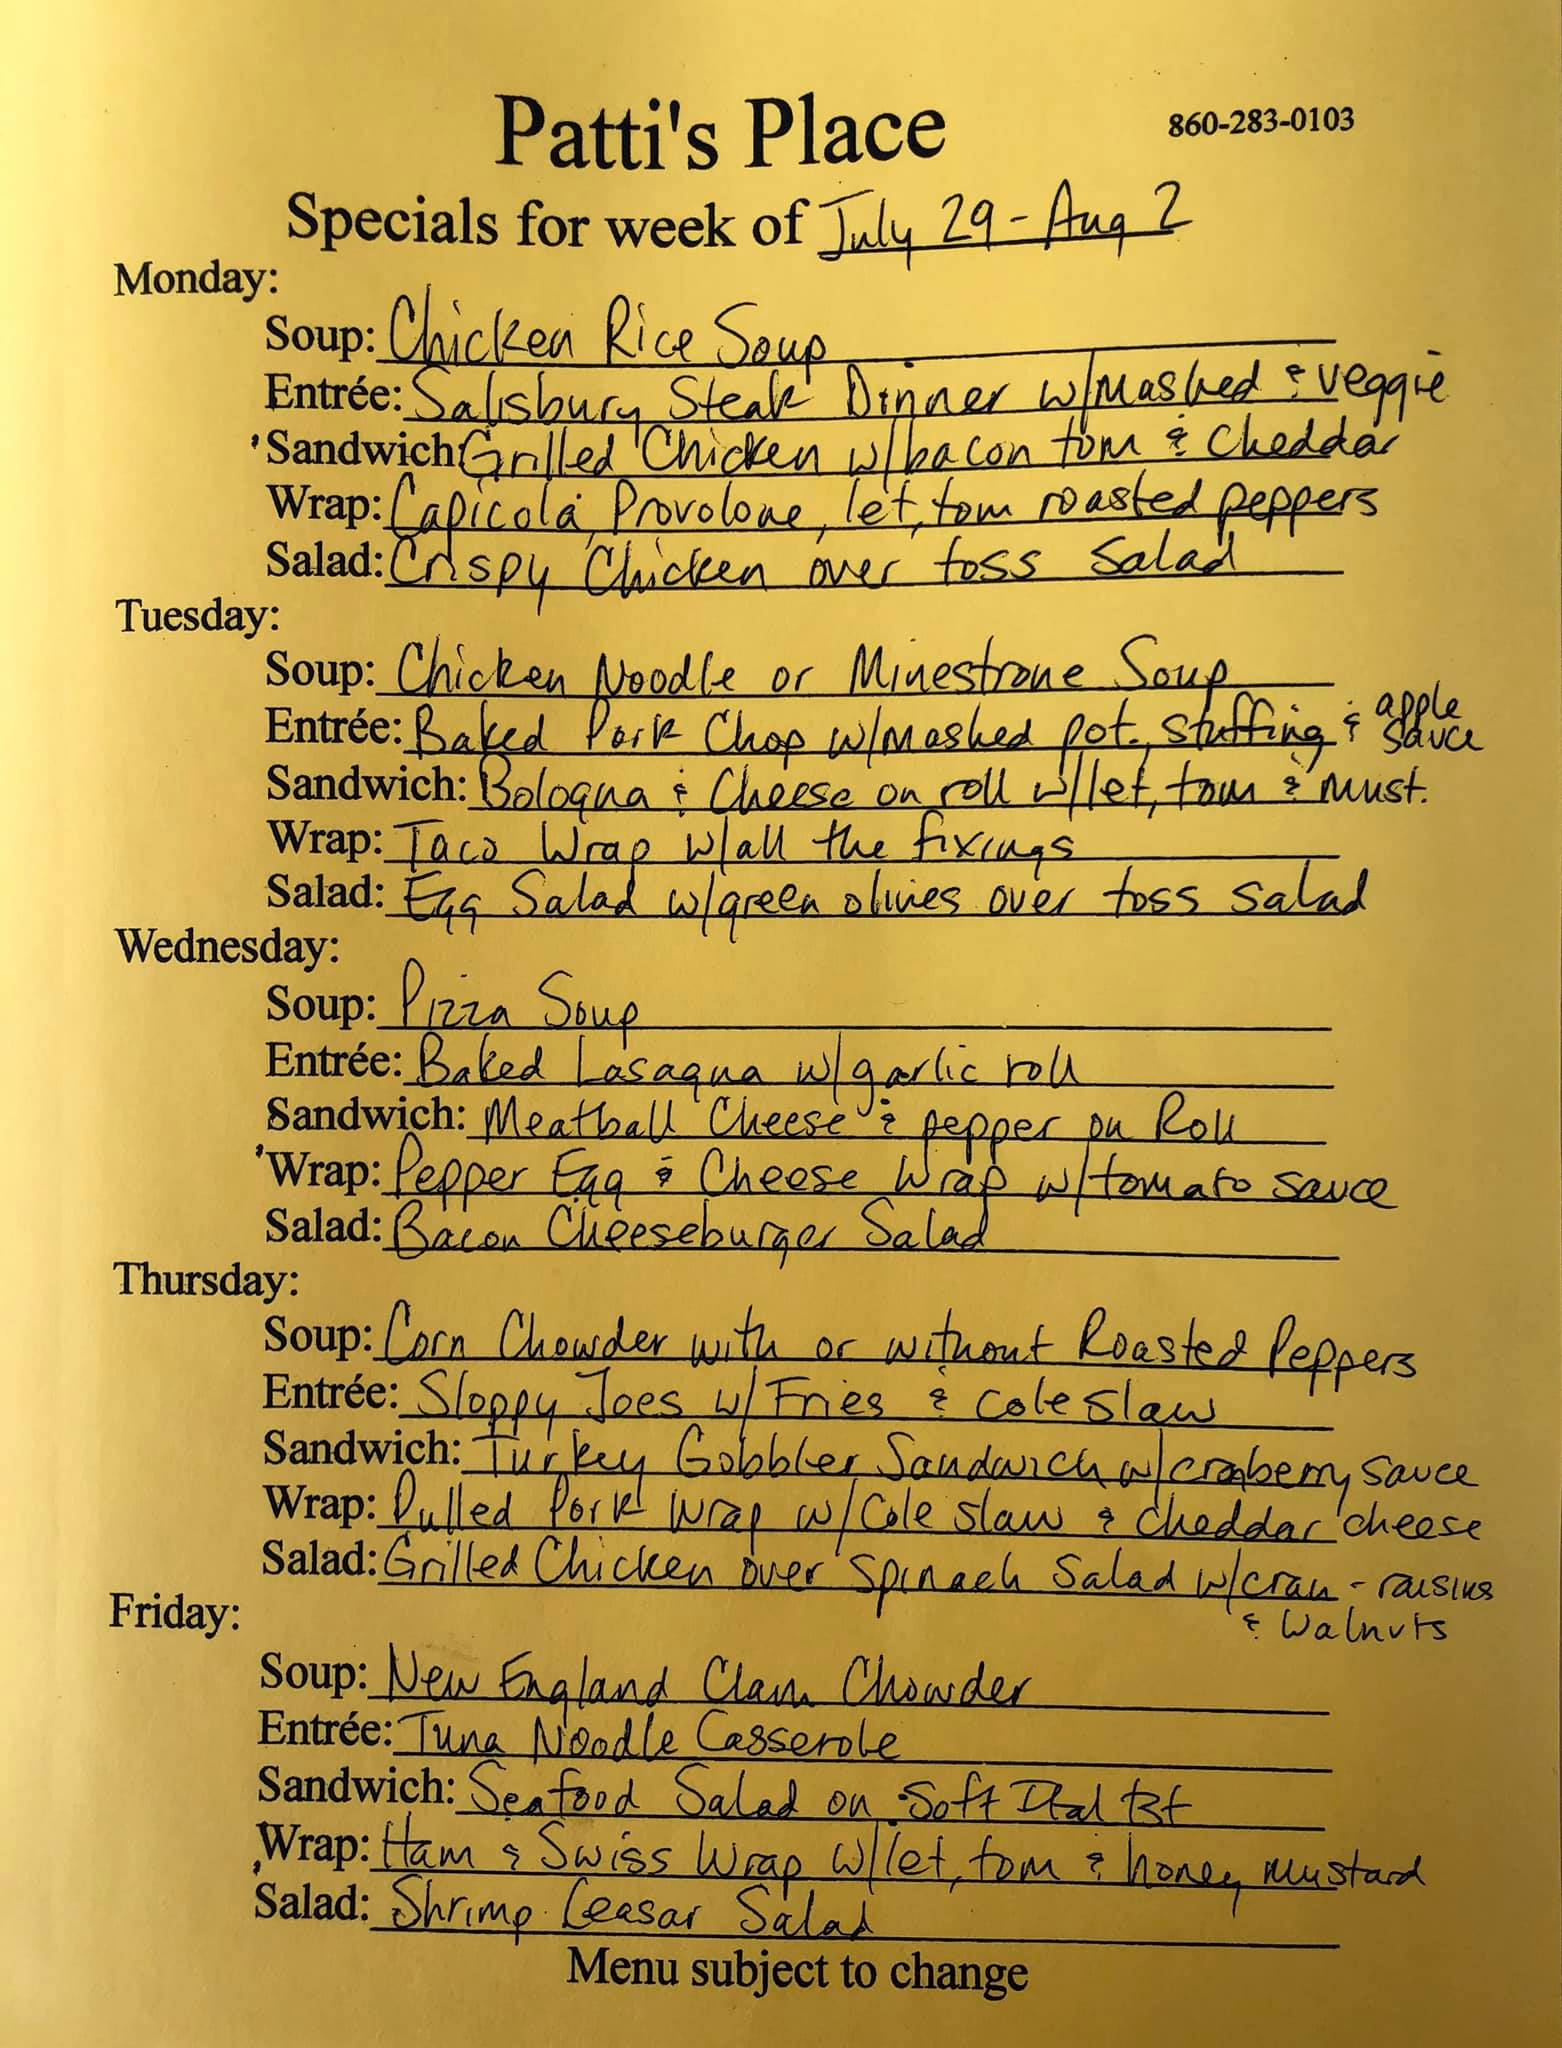 Patti's Place
860-283-0103
Specials for week of July 29 - Aug 2
Monday:
Soup: Chicken Rice Soup
Entrée: Salisbury Steak Dinner w/mashed & veggie
Sandwich: Grilled Chicken w/bacon tom & Cheddar
Wrap: Capicola, Provolone, let, tom roasted peppers
Salad: Crispy Chicken over toss Salad
Tuesday:
Soup: Chicken Noodle or Minestrone Soup
Entrée: Baked Pork Chop w/mashed pot., stuffing & apple sauce
Sandwich: Bologna & Cheese on roll w/let, tom & must.
Wrap: Taco Wrap w/all the fixings
Salad: Egg Salad w/green olives over toss salad
Wednesday:
Soup: Pizza Soup
Entrée: Baked Lasagna w/garlic roll
Sandwich: Meatball Cheese & pepper on Roll
Wrap: Pepper Egg & Cheese Wrap w/tomato sauce
Salad: Bacon Cheeseburger Salad
Thursday:
Soup: Corn Chowder with or without Roasted Peppers
Entrée: Sloppy Joes w/Fries & coleslaw
Sandwich: Turkey Gobbler Sandwich w/cranberry sauce
Wrap: Pulled Pork Wrap w/Cole slaw & cheddar cheese
Salad: Grilled Chicken over spinach Salad w/cran - raisins
& walnuts
Friday:
Soup: New England Clam Chowder
Entrée: Tuna Noodle Casserole
Sandwich: Seafood Salad on Soft
Wrap: Ham & Swiss Wrap w/let, tom & honey mustard
Salad: Shrimp Ceasar Salad
Menu subject to change